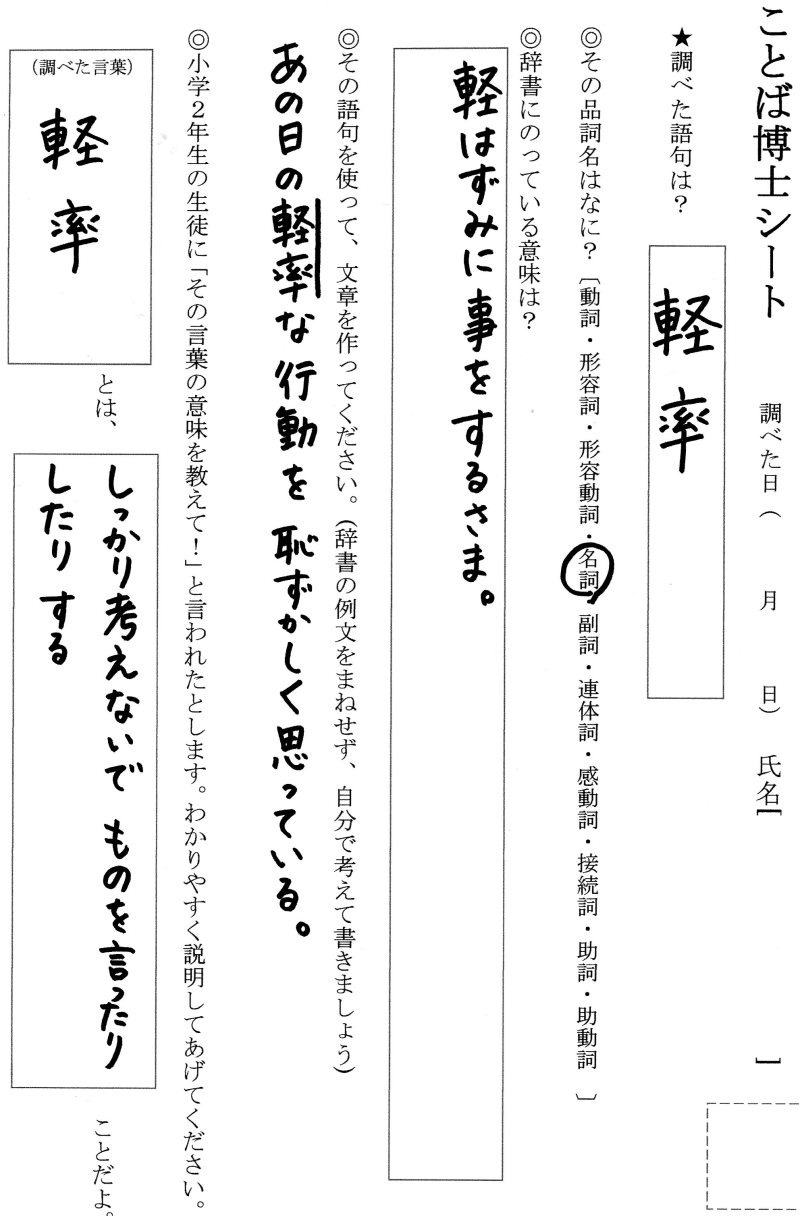 ことば博士シート　調べた日（　月　日）　氏名[　]
★調べた語句は？
軽率
◎その品詞名はなに？〔動詞・形容詞・形容動詞・名詞・副詞・連体詞・感動詞・接続詞・助詞・助動詞〕
◎辞書にのっている意味は？
軽はずみに事をするさま。
◎その語句を使って、文章を作ってください。（辞書の例文をまねせず、自分で考えて書きましょう）
あの日の軽率な行動を恥ずかしく思っている。
◎小学２年生の生徒に「その言葉の意味を教えて！」と言われたとします。わかりやすく説明してあげてください。
（調べた言葉）
軽率
とは、
しっかり考えないでものを言ったり
したりする
ことだよ。